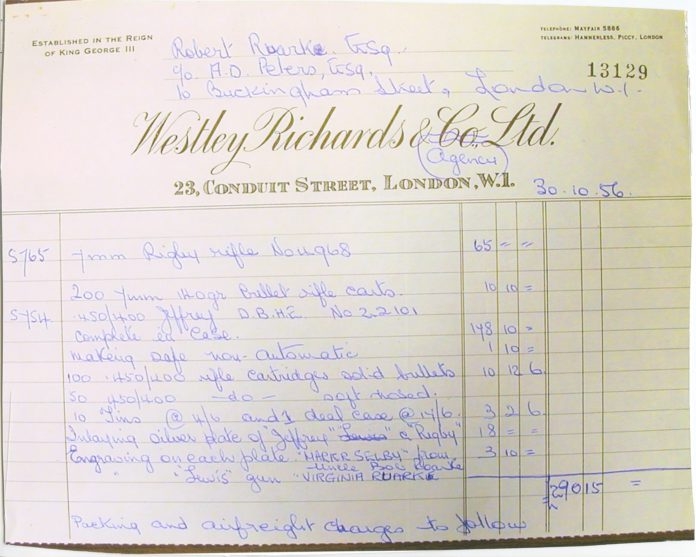 ESTABLISHED IN THE REIGN
OF KING GEORGE III
TELEPHONE: MAYFAIR 5866
TELEGRAMS: HAMMERLESS, PICCY, LONDON
13129
Robert Ruark Esq.
c/o A.D. Peters, Esq,
10 Buckingham Street, London W.1.
Westley Richards & Co. Ltd.
(Agency)
23, CONDUIT STREET, LONDON, W.1.
30.10.56.
S765 7mm Rigby rifle No 4968 65 = =
200 7mm 140gr Bullet rifle carts. 10 10 =
S754 .450/400 Jeffrey D.B.H.E. No 22101
complete in case. 148 10 =
making safe non-automatic 1 10 =
100 .450/400 rifle cartridges solid bullets 10 12 6
50 450/400 -do- soft nosed.
10 Tins @ 4/6 and 1 deal case @ 17/6. 3 2 6
Inlaying silver plate of "Jeffrey" "Lewis" & "Rigby" 18 = =
Engraving on each plate "MARK R SELBY" from 3 10 =
Uncle Bob Ruark
" "Lewis" gun "VIRGINIA RUARK"
290 15 =
Packing and airfreight charges to follow